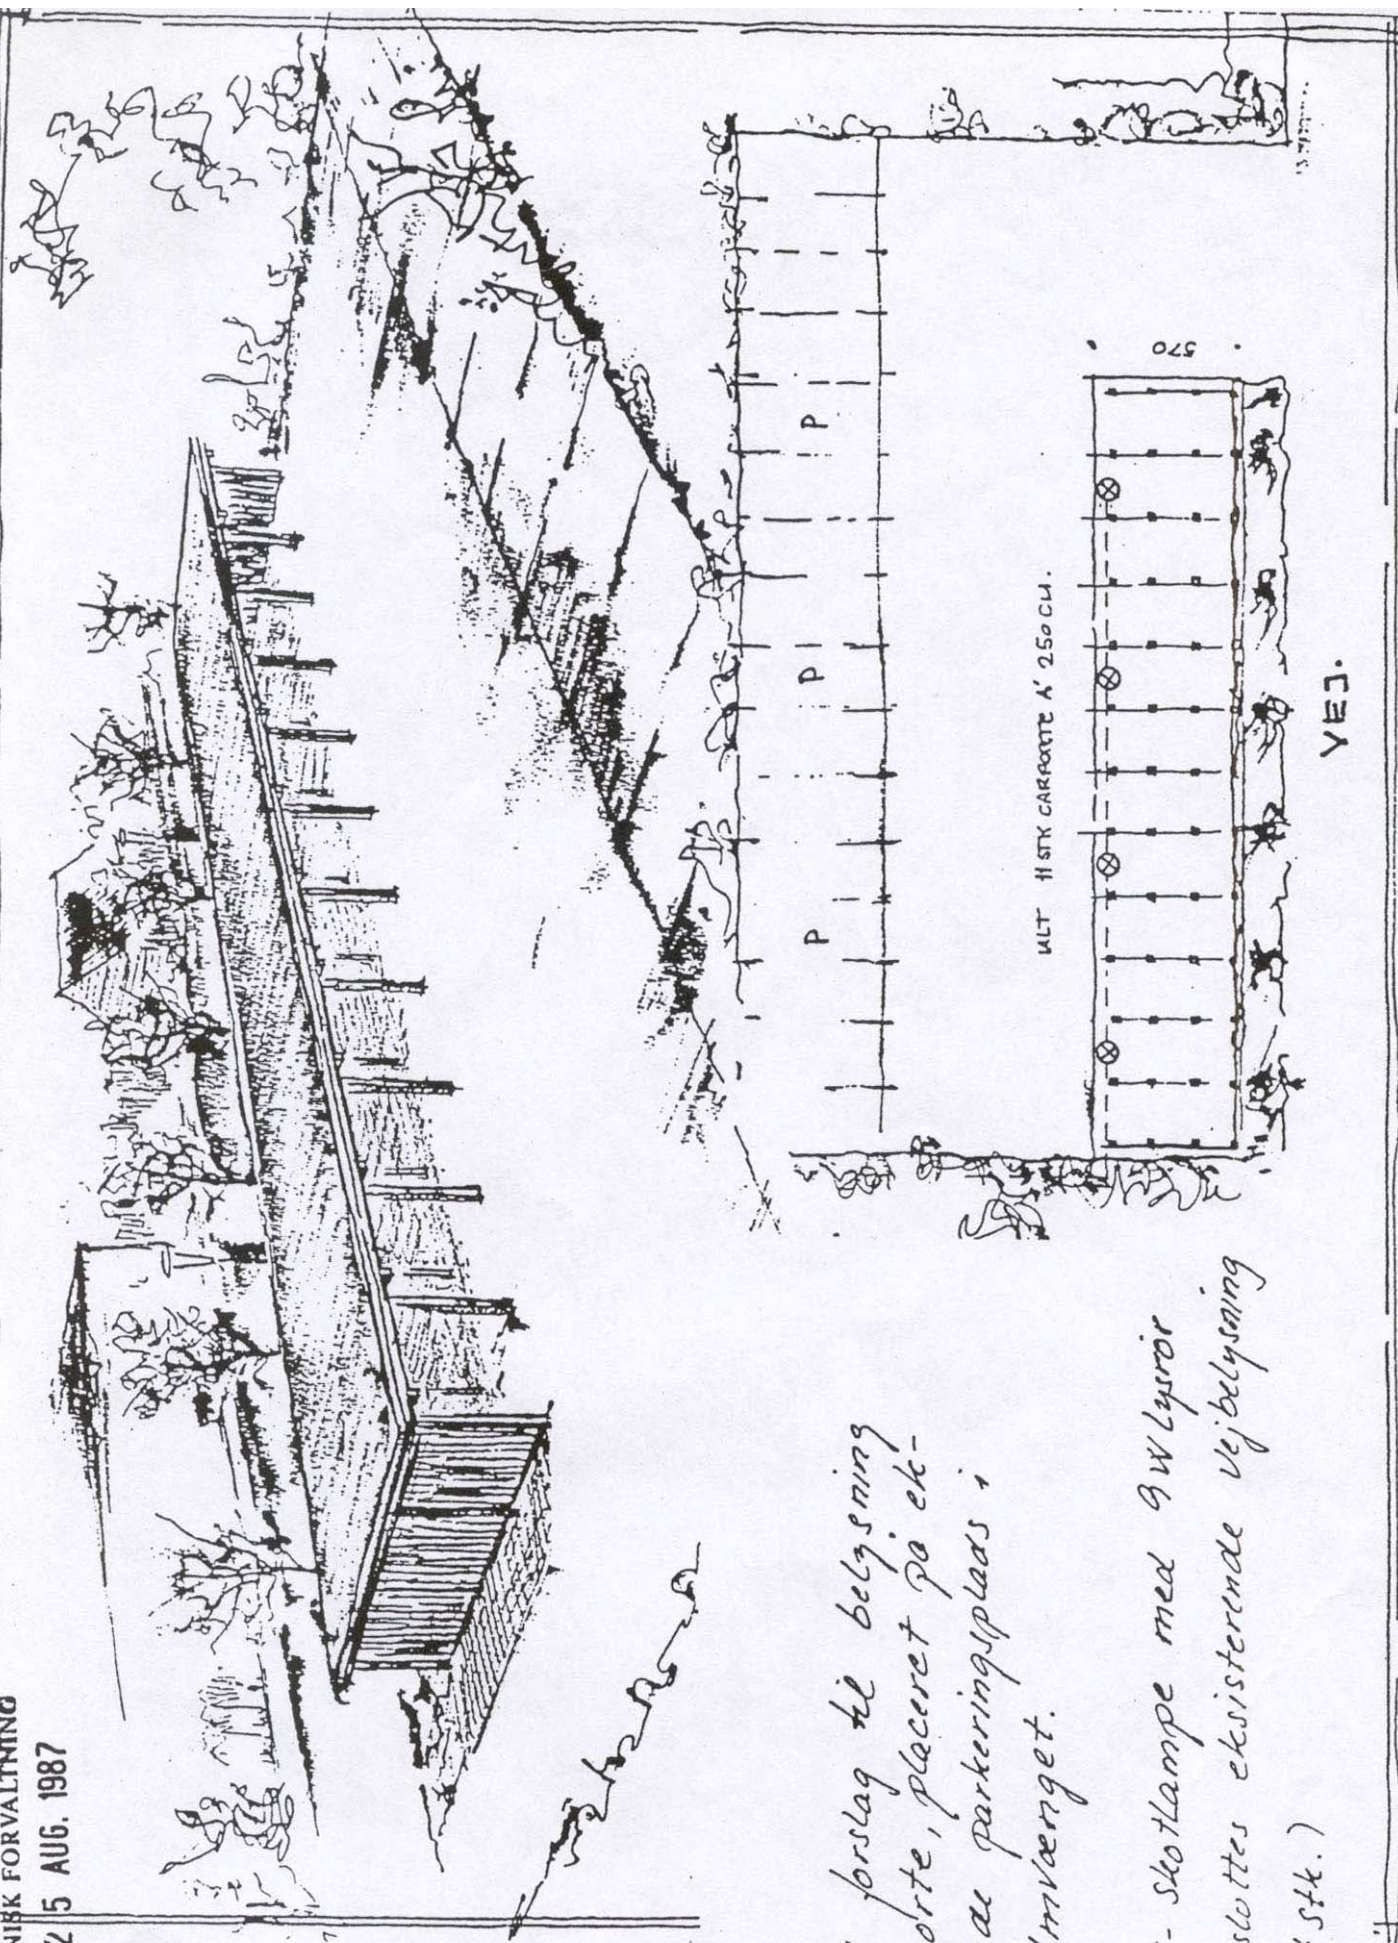 NISK FORVALTNING
25 AUG. 1987
forslag til belysning
orte, placeret på ek-
de parkeringsplads i
mvænget.
- Skotlampe med 9W lysrør
sluttes eksisterende vejbelysning
stk.)
P
P
P
IALT 11 STK CARPORTE A' 250 CM.
570
VEJ.